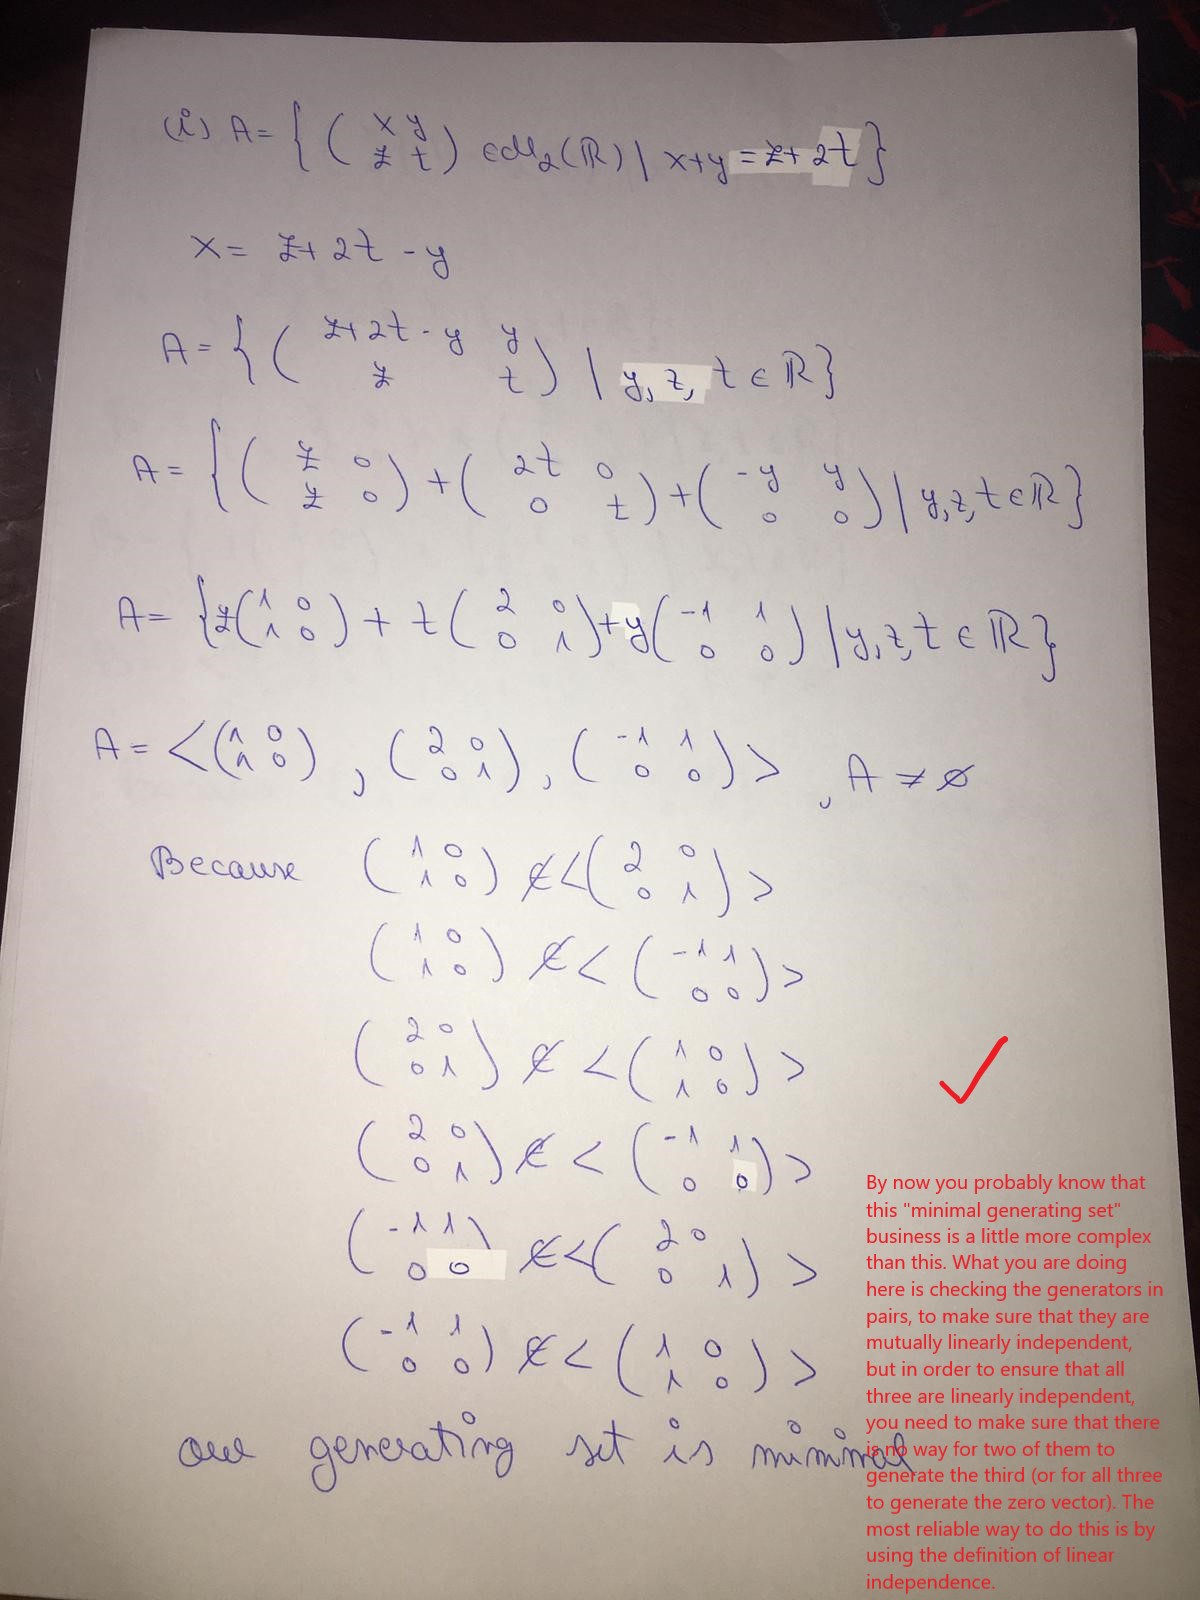 (i) A = { ( x y
z t ) ∈ M₂(ℝ) | x+y = z+2t }
x = z+2t-y
A = { ( z+2t-y y
z t ) | y, z, t ∈ ℝ }
A = { ( z 0
z 0 ) + ( 2t 0
0 t ) + ( -y y
0 0 ) | y, z, t ∈ ℝ }
A = { z ( 1 0
1 0 ) + t ( 2 0
0 1 ) + y ( -1 1
0 0 ) | y, z, t ∈ ℝ }
A = < ( 1 0
1 0 ) , ( 2 0
0 1 ) , ( -1 1
0 0 ) > , A ≠ ∅
Because ( 1 0
1 0 ) ∉ < ( 2 0
0 1 ) >
( 1 0
1 0 ) ∉ < ( -1 1
0 0 ) >
( 2 0
0 1 ) ∉ < ( 1 0
1 0 ) >
( 2 0
0 1 ) ∉ < ( -1 1
0 0 ) >
( -1 1
0 0 ) ∉ < ( 2 0
0 1 ) >
( -1 1
0 0 ) ∉ < ( 1 0
1 0 ) >
our generating set is minimal
✓
By now you probably know that
this "minimal generating set"
business is a little more complex
than this. What you are doing
here is checking the generators in
pairs, to make sure that they are
mutually linearly independent,
but in order to ensure that all
three are linearly independent,
you need to make sure that there
is no way for two of them to
generate the third (or for all three
to generate the zero vector). The
most reliable way to do this is by
using the definition of linear
independence.